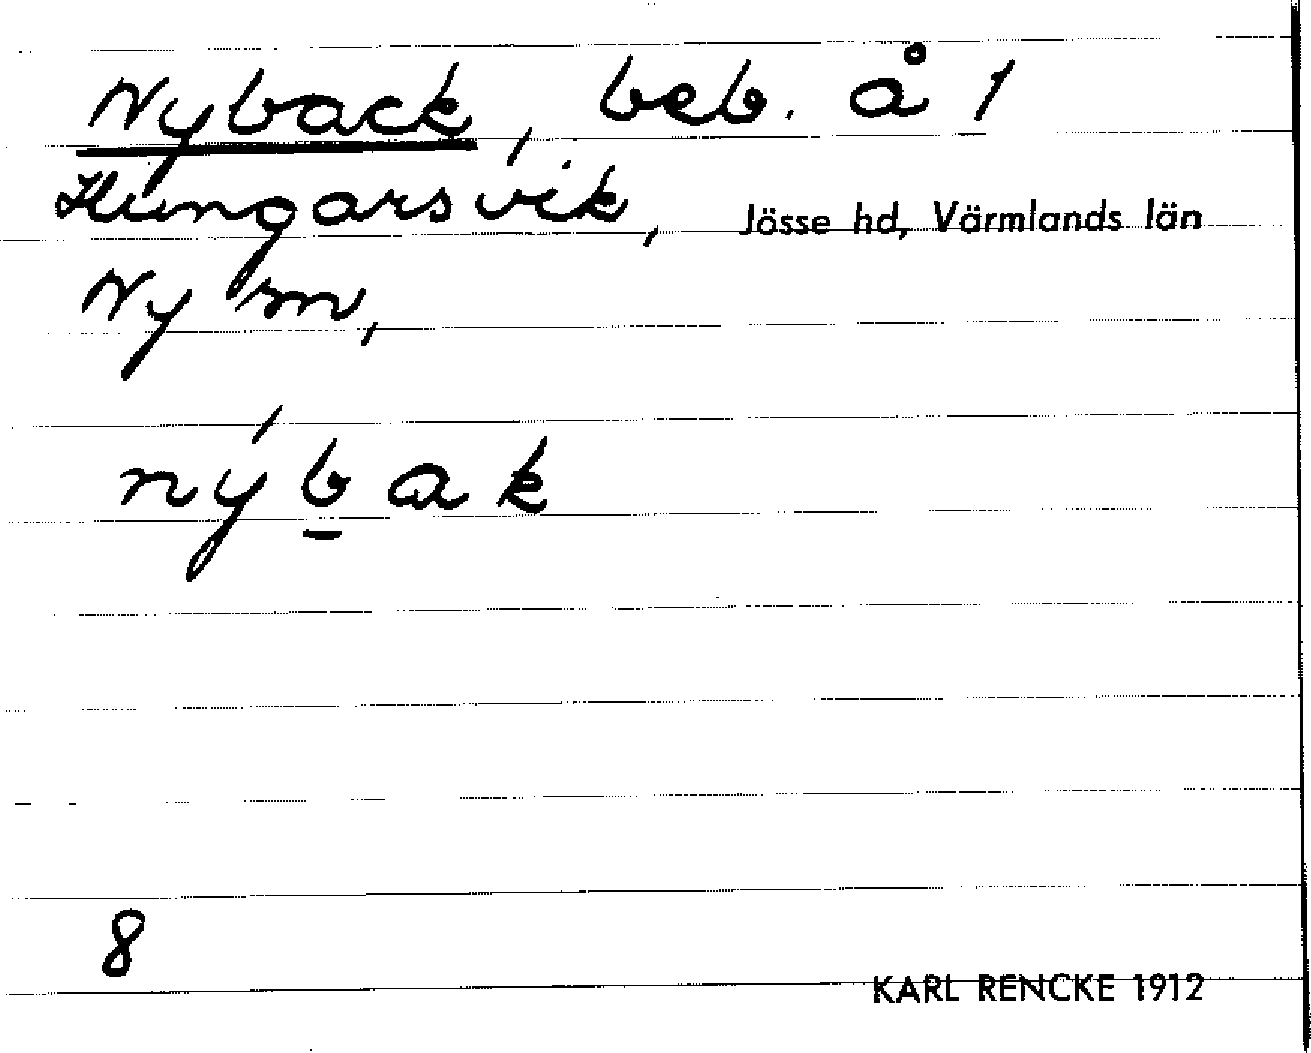 Nyback, beb. å 1
Hungarsvik, Jösse hd, Värmlands län
Ny sn,
nýbak
8
KARL RENCKE 1912